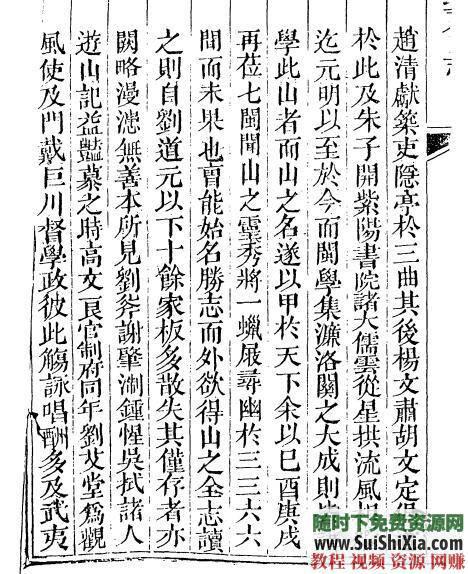 趙清獻築吏隱亭於三曲其後楊文肅胡文定
於此及朱子開紫陽書院諸大儒雲從星拱流風
迄元明以至於今而閩學集濂洛關之大成則
學此山者而山之名遂以甲於天下余以已酉庚戌
再莅七閩聞山之靈秀將一蠟屐尋幽於三三六六
間而未果也曹能始名勝志而外欲得山之全志讀
之則自劉道元以下十餘家板多散失其僅存者亦
闕略漫漶無善本所見劉斧謝肇淛鍾惺吳拭諸人
遊山記益豔慕之時高文良官制府同年劉艾堂爲觀
風使及門戴巨川督學政彼此觴詠唱酬多及武夷
随时下免费资源网
www.SuiShiXia.Com
教程 视频 资源 网赚